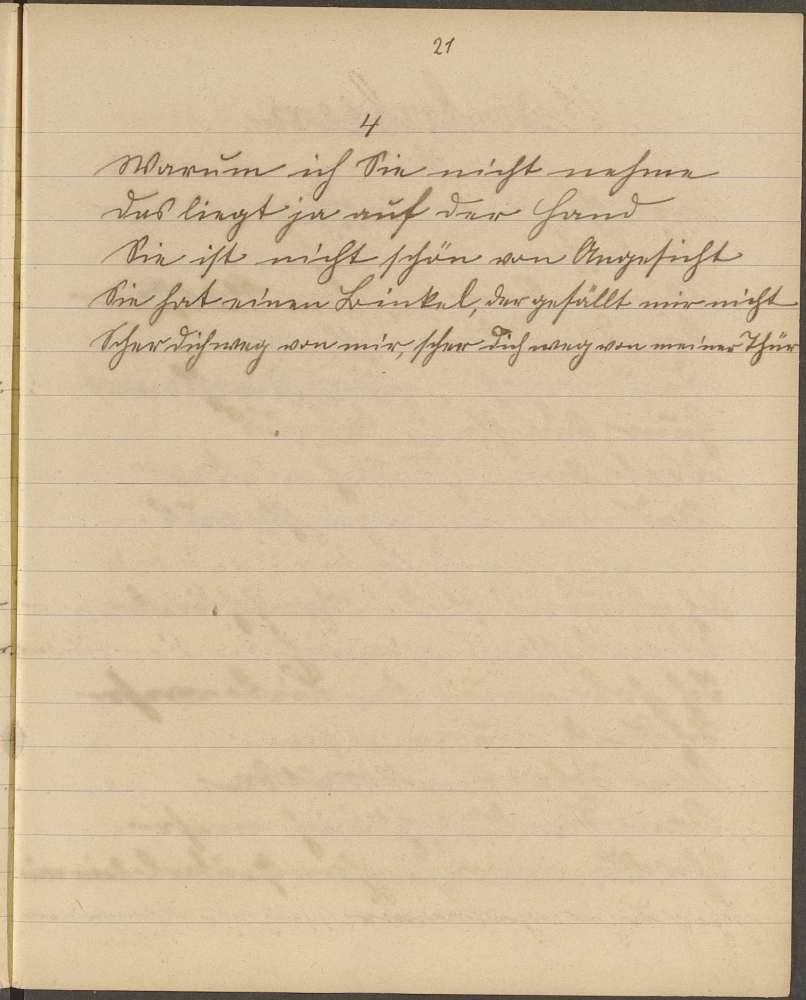 21
4
Warum ich Sie nicht nehme
das liegt ja auf der Hand
Sie ist nicht schön von Angesicht
Sie hat einen Binkel, der gefällt mir nicht
Scher dich weg von mir, scher dich weg von meiner Thür